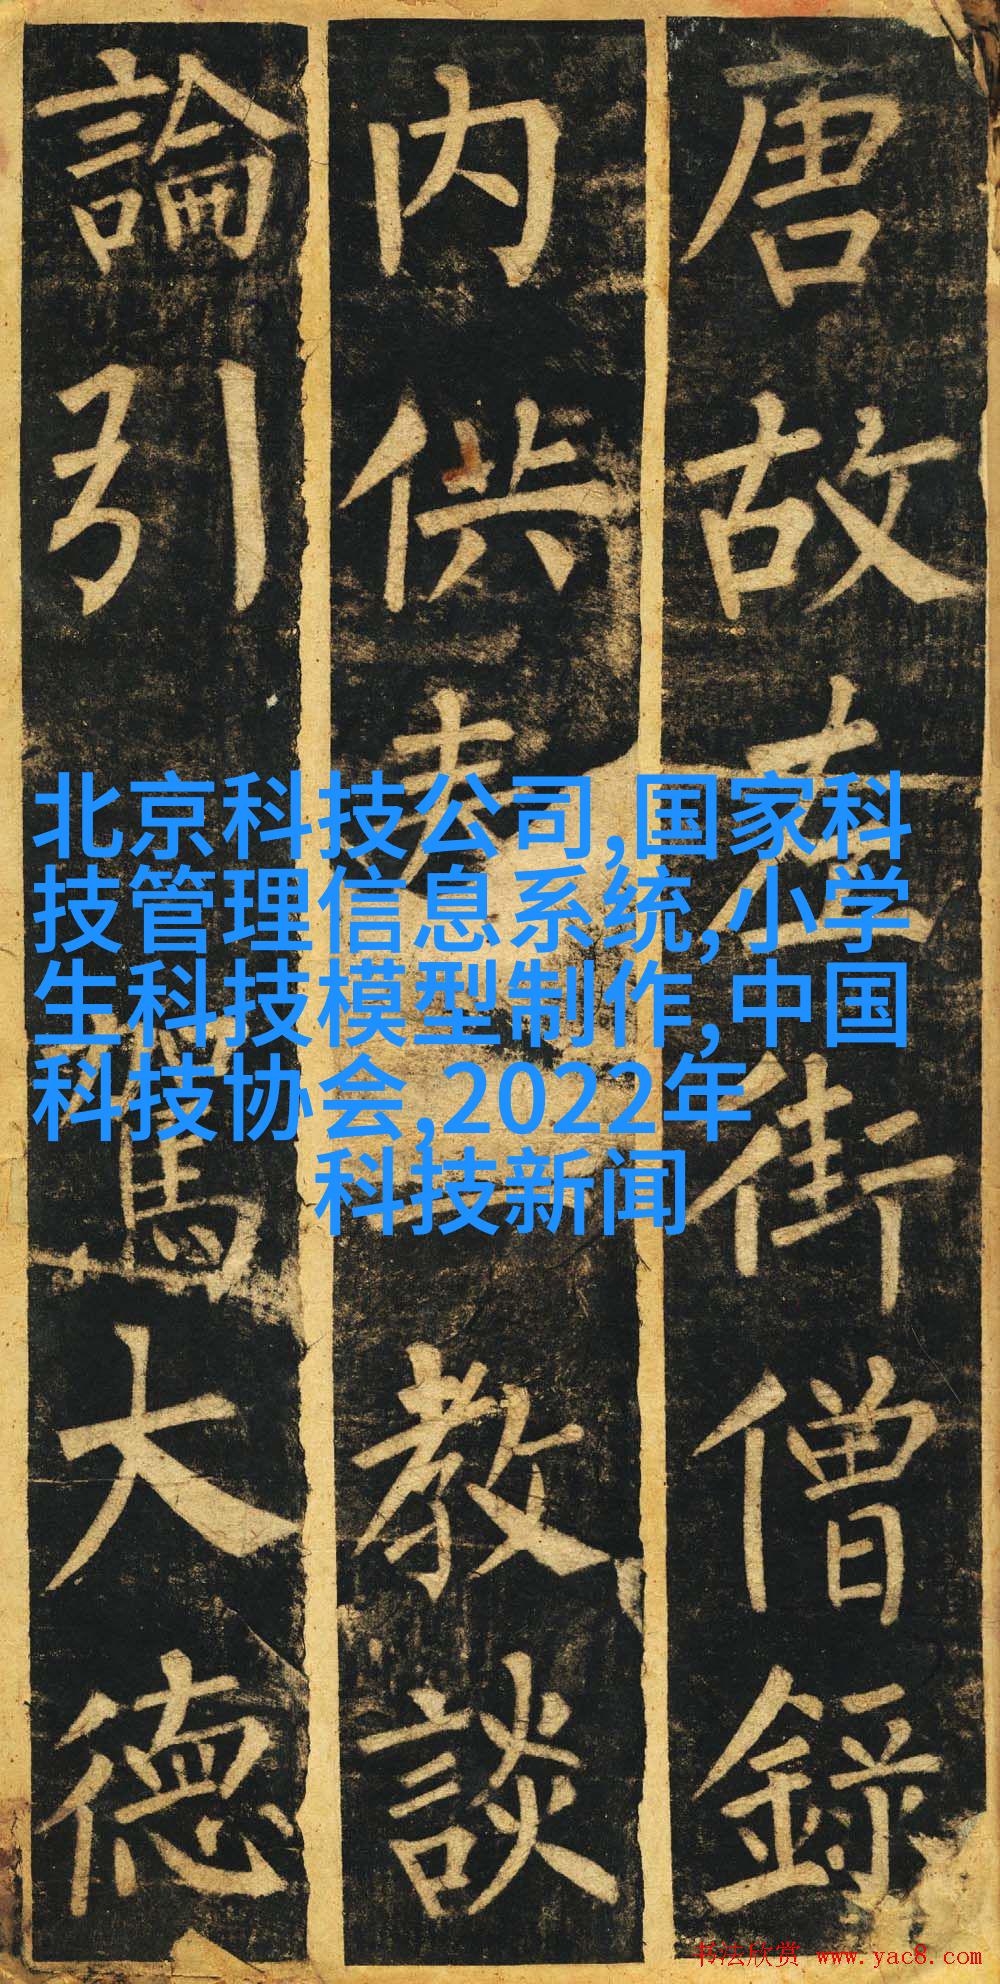 唐故左街僧錄
内供奉
教談
論引
駕大德
北京科技公司,国家科
技管理信息系统,小学
生科技模型制作,中国
科技协会,2022年
科技新闻
书法欣赏 www.yac8.com